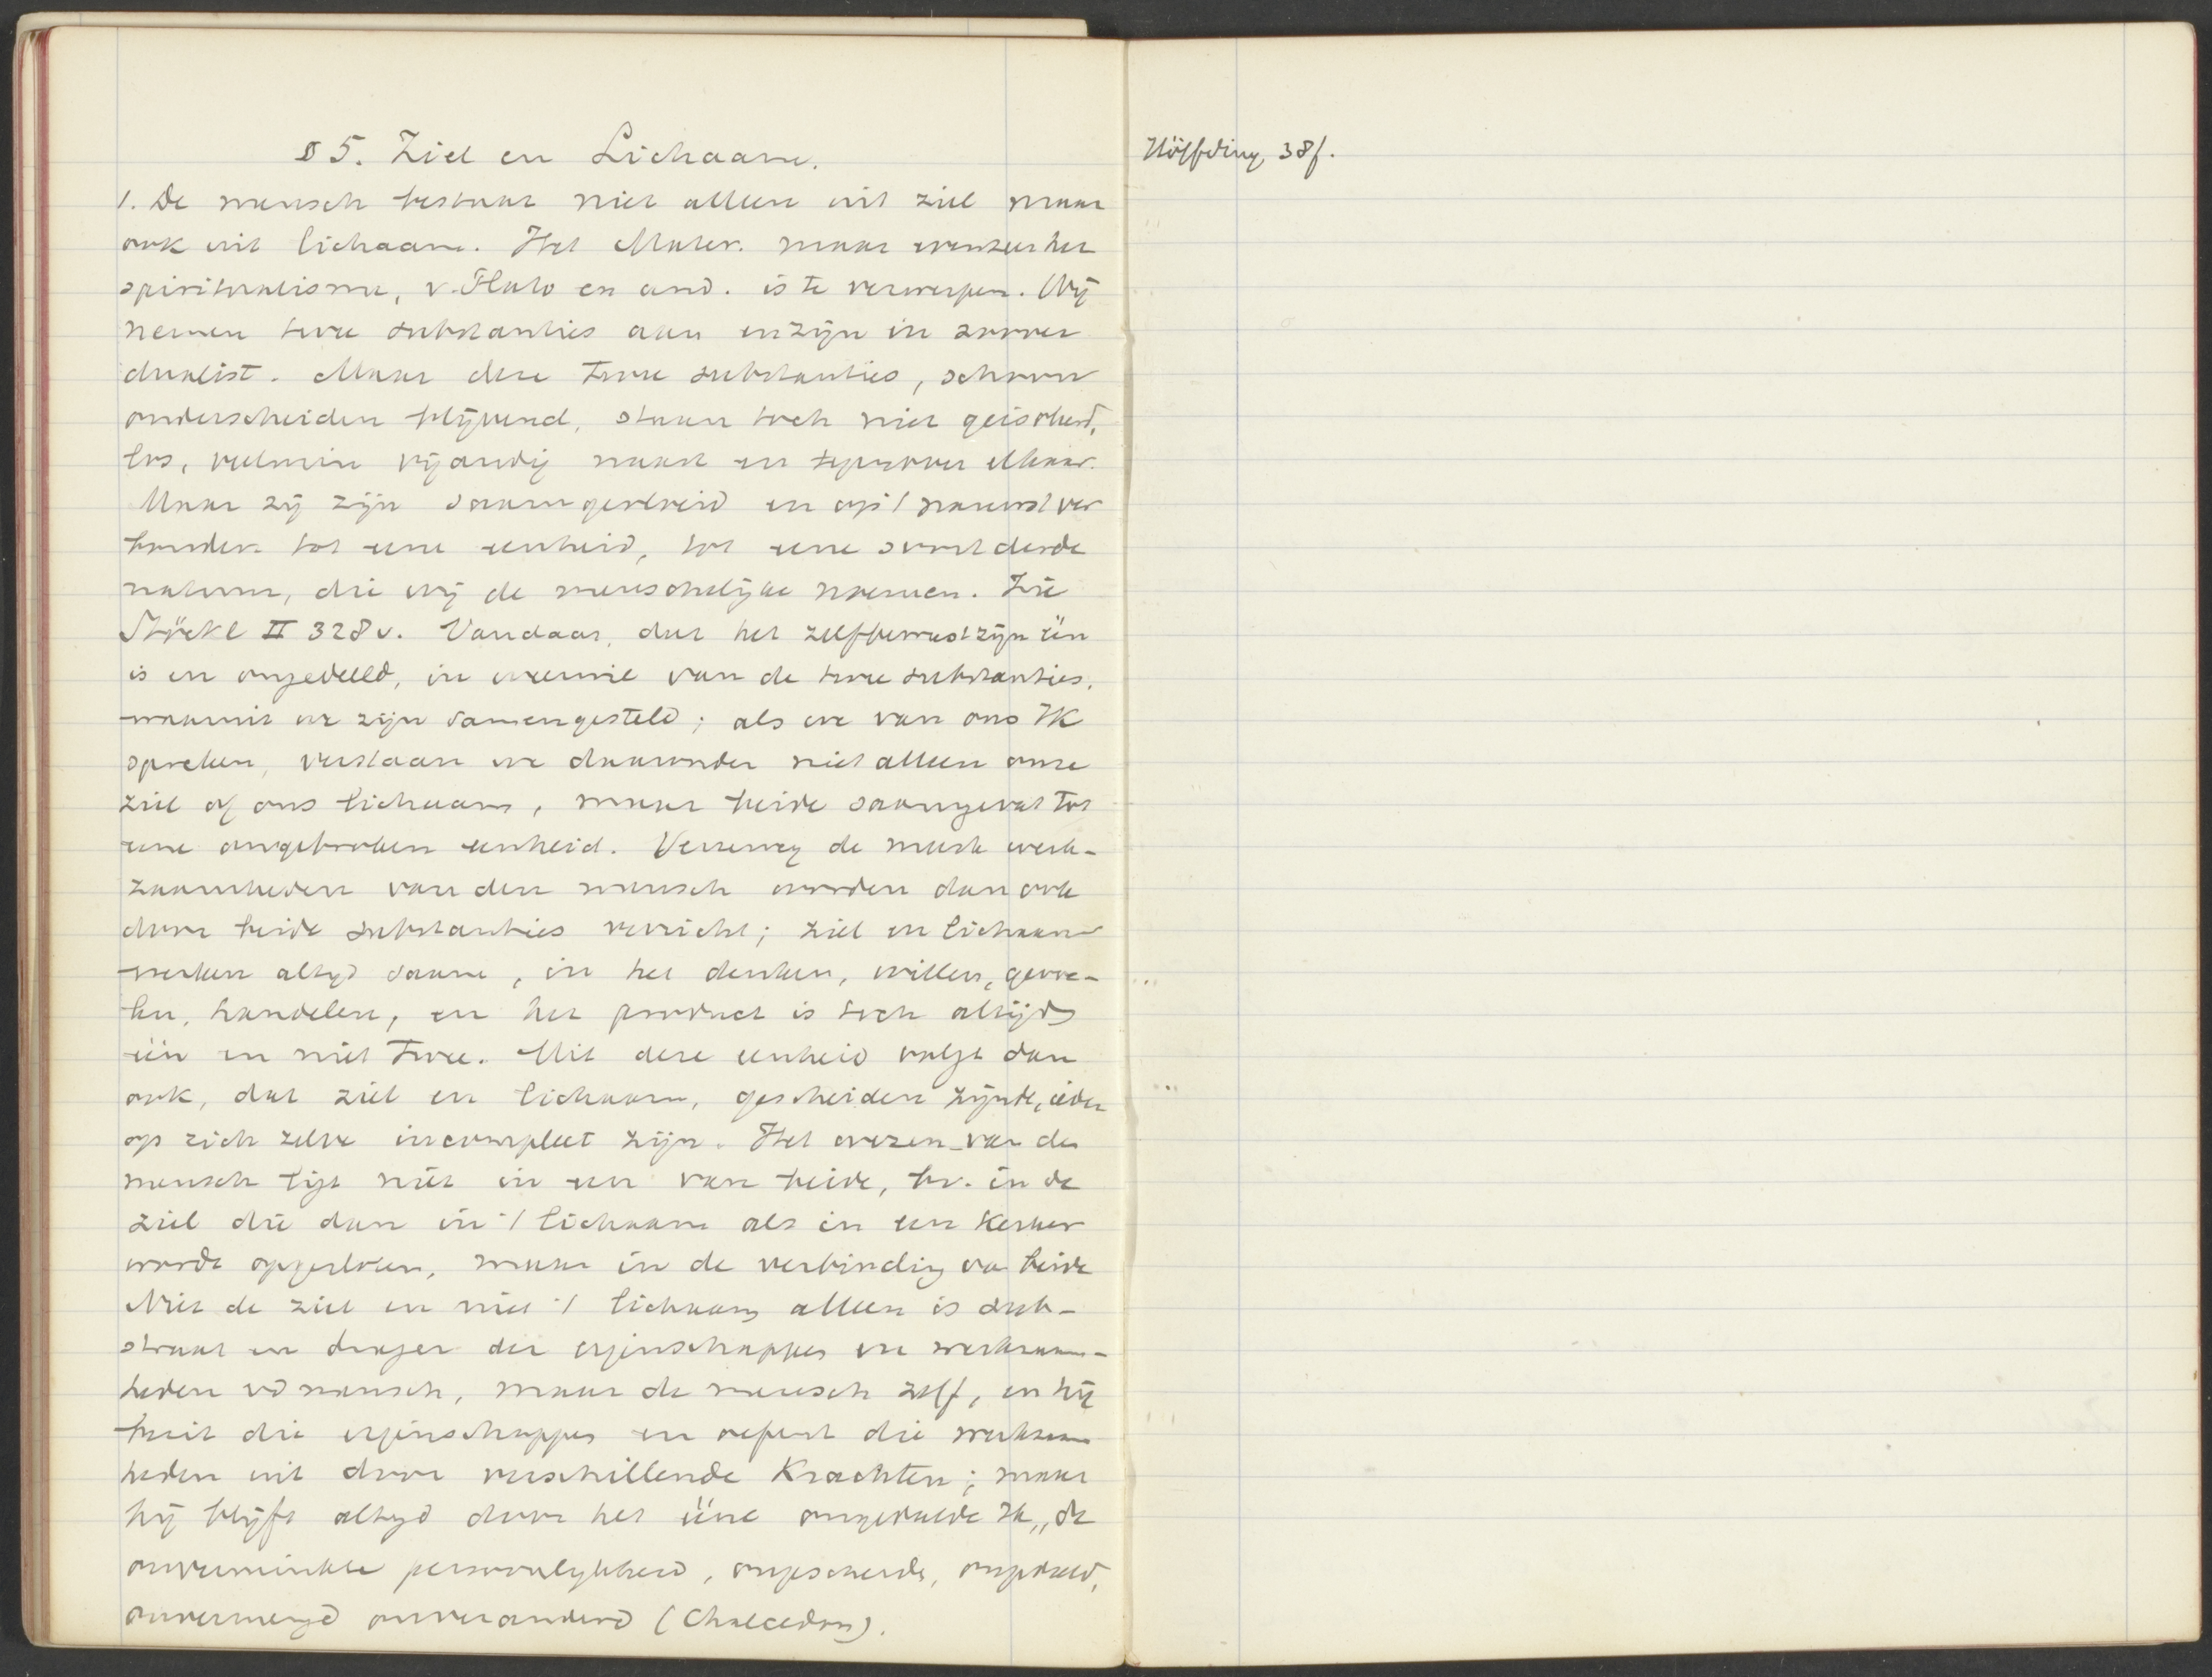 § 5. Ziel en Lichaam.
1. De mensch bestaat niet alleen uit ziel maar
ook uit lichaam. Het Mater. maar evenzeer het
spiritualisme, v. Plato en and. is te verwerpen. Wij
nemen twee substanties aan en zijn in zoover
dualist. Maar deze twee substanties, schoon
onderscheiden blijvend, staan toch niet geisoleerd,
los, veelmin vijandig naast en tegenover elkaar.
Maar zij zijn saamgesteld en op 't nauwst ver
bonden tot eene eenheid, tot eene soort derde
natuur, die wij de menschelijke noemen. Zie
Stöckl II 328v. Vandaar, dat het zelfbewustzijn één
is en ongedeeld, in weerwil van de twee substanties,
waaruit we zijn samengesteld; als we van ons Ik
spreken, verstaan we daaronder niet alleen onze
ziel of ons lichaam, maar beide saamgevat tot
eene ongebroken eenheid. Verreweg de meeste werk-
zaamheden van den mensch worden dan ook
door beide substanties verricht; ziel en lichaam
werken altijd saam, in het denken, willen, gevoe-
len, handelen, en het product is toch altijd
één en niet twee. Uit deze eenheid volgt dan
ook, dat ziel en lichaam, gescheiden zijnde, ieder
op zich zelve incompleet zijn. Het wezen van den
mensch ligt niet in een van beide, bv. in de
ziel die dan in 't lichaam als in een kerker
wordt opgesloten, maar in de verbinding van beide
Niet de ziel en niet 't lichaam alleen is sub-
straat en drager der eigenschappen en werkzaam-
heden vd mensch, maar de mensch zelf, en hij
bezit die eigenschappen en oefent die werkzaam
heden uit door verschillende krachten; maar
hij blijft altijd door het ééne ongedeelde Ik, de
onverminkte persoonlijkheid, ongescheide, ongedeeld,
onvermengd onveranderd (Chalcedon).
Höffding 38f.